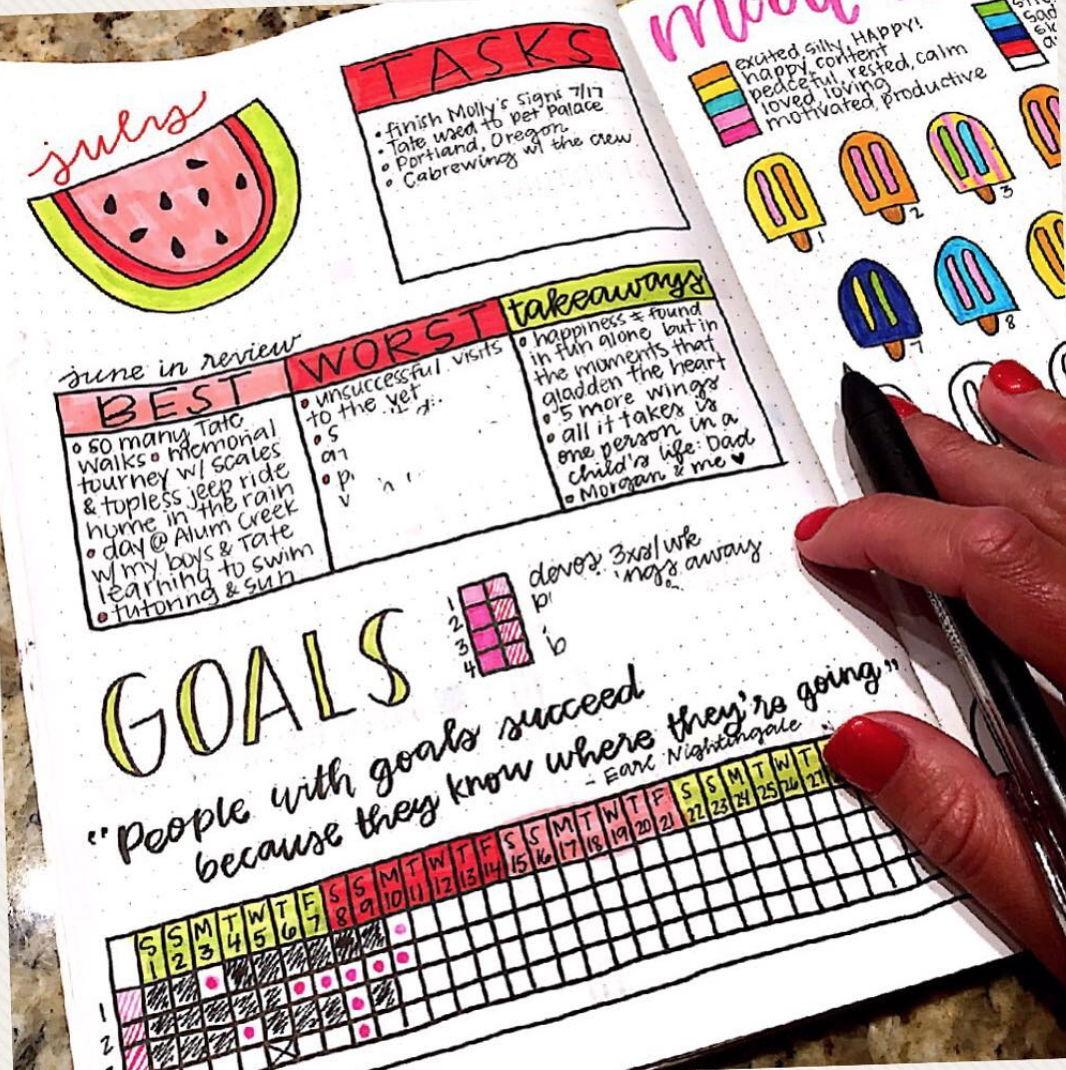 july
TASKS
• finish Molly's signs 7/17
• Tate used to pet Palace
• Portland, Oregon
• Cabrewing w/ the crew
june in review
BEST
• so many Tate
walks • memorial
tourney w/ scales
& topless jeep ride
home in the rain
• day @ Alum Creek
w/ my boys & Tate
learning to swim
• tutoring & sun
WORST
• unsuccessful visits
to the vet
takeaways
• happiness ≠ found
in fun alone but in
the moments that
gladden the heart
• 5 more wings
• all it takes is
one person in a
child's life: Dad
• Morgan & me ♥
GOALS
1
2
3
4
devos 3xs/wk
away
"People with goals succeed
because they know where they're going"
- Earl Nightingale
S S M T W T F S S M T W T F S S M T W T F S S M T W T
1 2 3 4 5 6 7 8 9 10 11 12 13 14 15 16 17 18 19 20 21 22 23 24 25 26 27
1
2
mood
excited, silly, HAPPY!
happy, content
peaceful, rested, calm
loved, loving
motivated, productive
sad
1 2 3
7 8